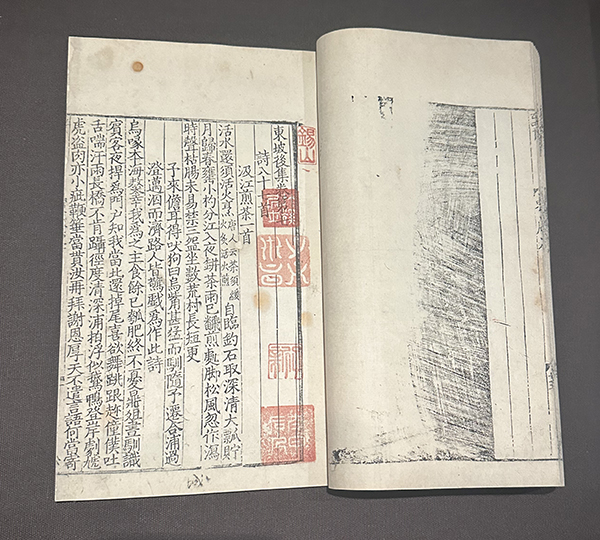 錫山
東坡後集
詩八十
汲江煎茶一首
活水還須活火煮唐人云茶須緩火炙活火煎自臨釣石取深清大瓢貯
月歸春甕小杓分江入夜缾茶雨已飜煎處脚松風忽作瀉
時聲枯腸未易禁三盌坐數荒村長短更
予來儋耳得吠狗曰烏觜甚猛而馴隨予遷合浦過
澄邁泅而濟路人皆驚戲爲作此詩
烏喙本海獒幸我爲之主食餘已瓠肥終不憂鼎俎晝馴識
賓客夜捍爲門户知我當北還掉尾喜欲舞跳踉趂僮僕吐
舌喘汗雨長橋不肯躡徑度清深浦拍浮似鵞鴨登岸劇虓
虎盗肉亦小疵鞭箠當貰汝再拜謝恩厚天不遣言語何當寄